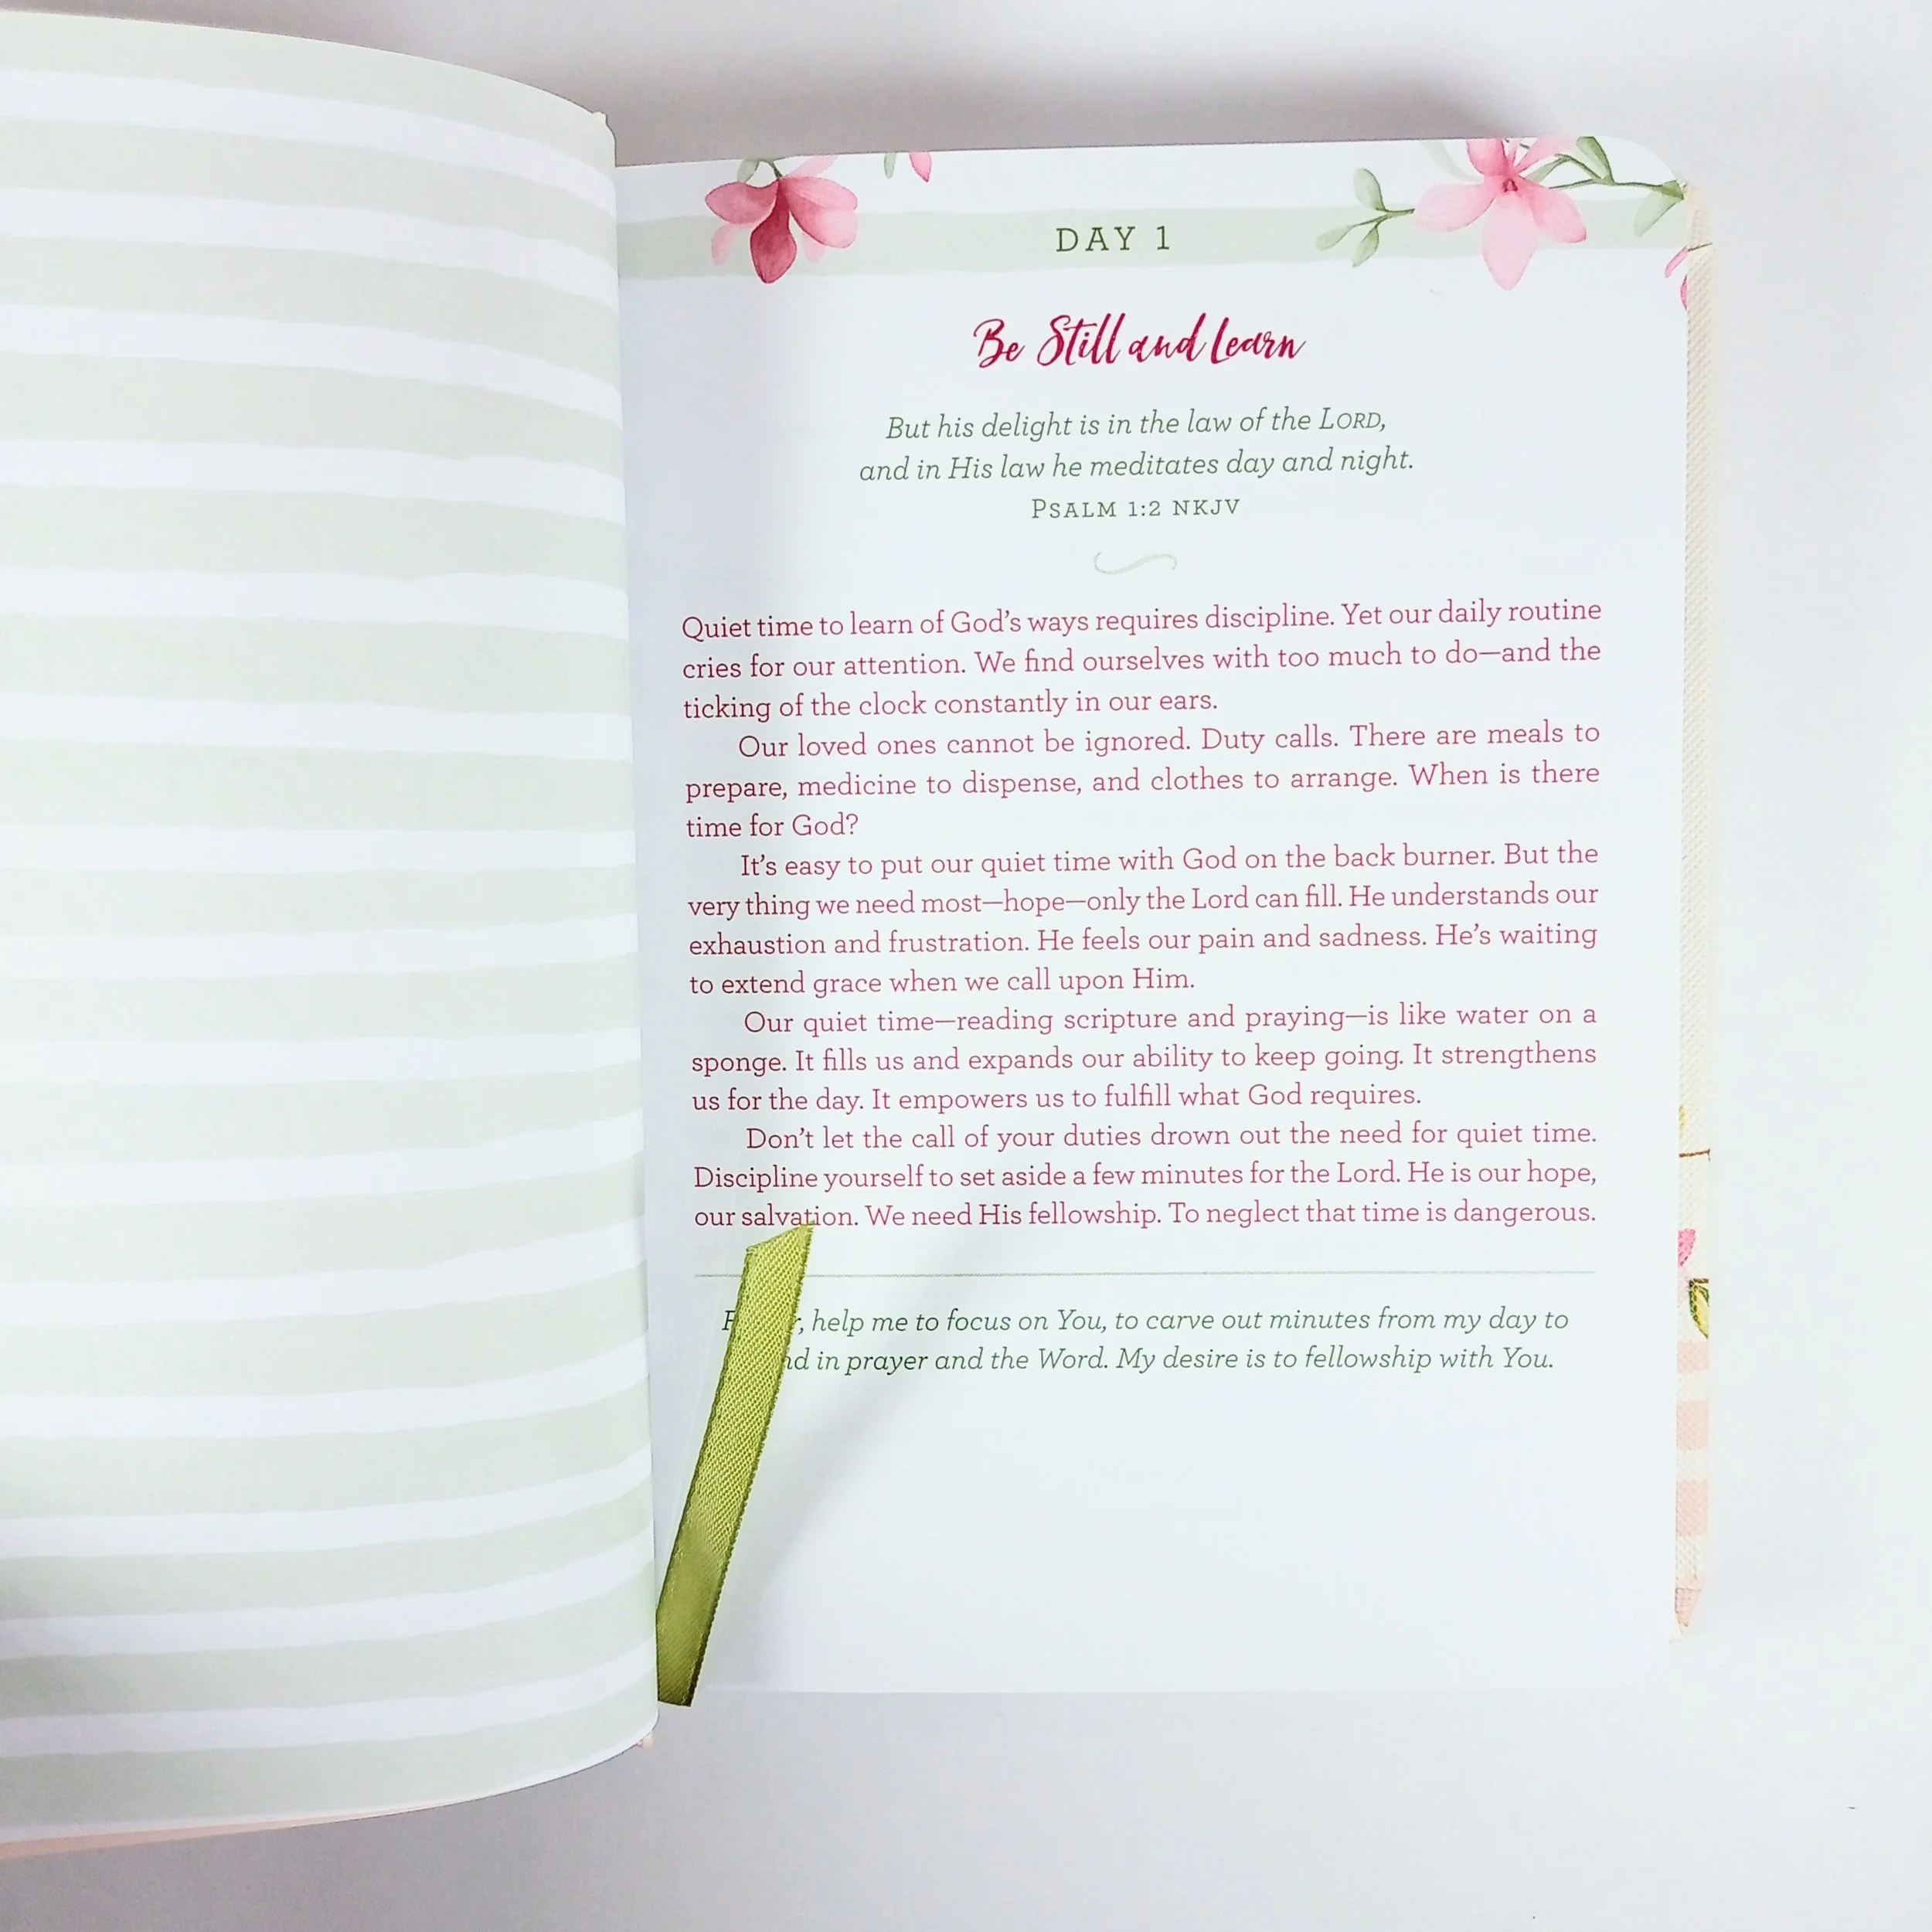 DAY 1
Be Still and Learn
But his delight is in the law of the LORD,
and in His law he meditates day and night.
PSALM 1:2 NKJV
Quiet time to learn of God’s ways requires discipline. Yet our daily routine
cries for our attention. We find ourselves with too much to do—and the
ticking of the clock constantly in our ears.
Our loved ones cannot be ignored. Duty calls. There are meals to
prepare, medicine to dispense, and clothes to arrange. When is there
time for God?
It’s easy to put our quiet time with God on the back burner. But the
very thing we need most—hope—only the Lord can fill. He understands our
exhaustion and frustration. He feels our pain and sadness. He’s waiting
to extend grace when we call upon Him.
Our quiet time—reading scripture and praying—is like water on a
sponge. It fills us and expands our ability to keep going. It strengthens
us for the day. It empowers us to fulfill what God requires.
Don’t let the call of your duties drown out the need for quiet time.
Discipline yourself to set aside a few minutes for the Lord. He is our hope,
our salvation. We need His fellowship. To neglect that time is dangerous.
help me to focus on You, to carve out minutes from my day to
in prayer and the Word. My desire is to fellowship with You.